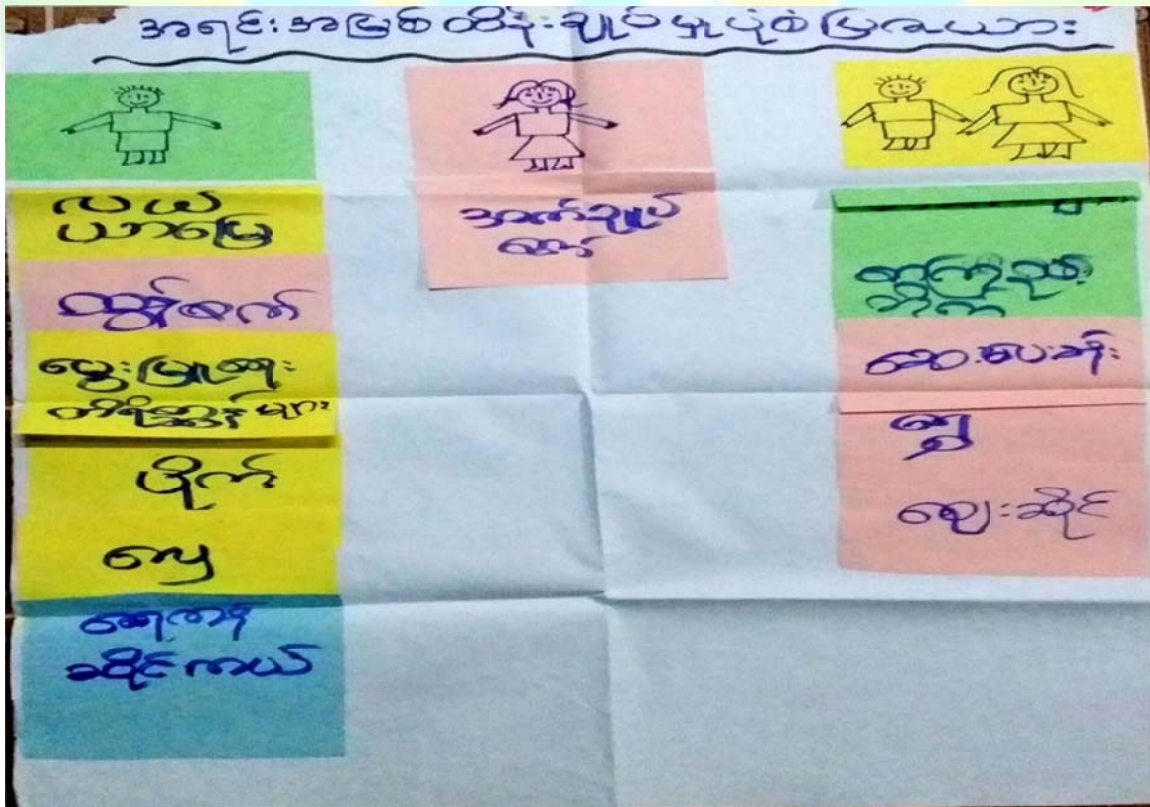 အရင်းအမြစ်ထိန်းချုပ်မှုပုံစံပြဇယား
လယ်
ယာမြေ
ထွန်စက်
မွေးမြူရေး
တိရိစ္ဆာန်များ
ပိုက်
လှေ
ရေကန်
ဆိုင်ကယ်
အက်ချုပ်
စက်
ဆေးပေးခန်း
ရွှေ
ဈေးဆိုင်